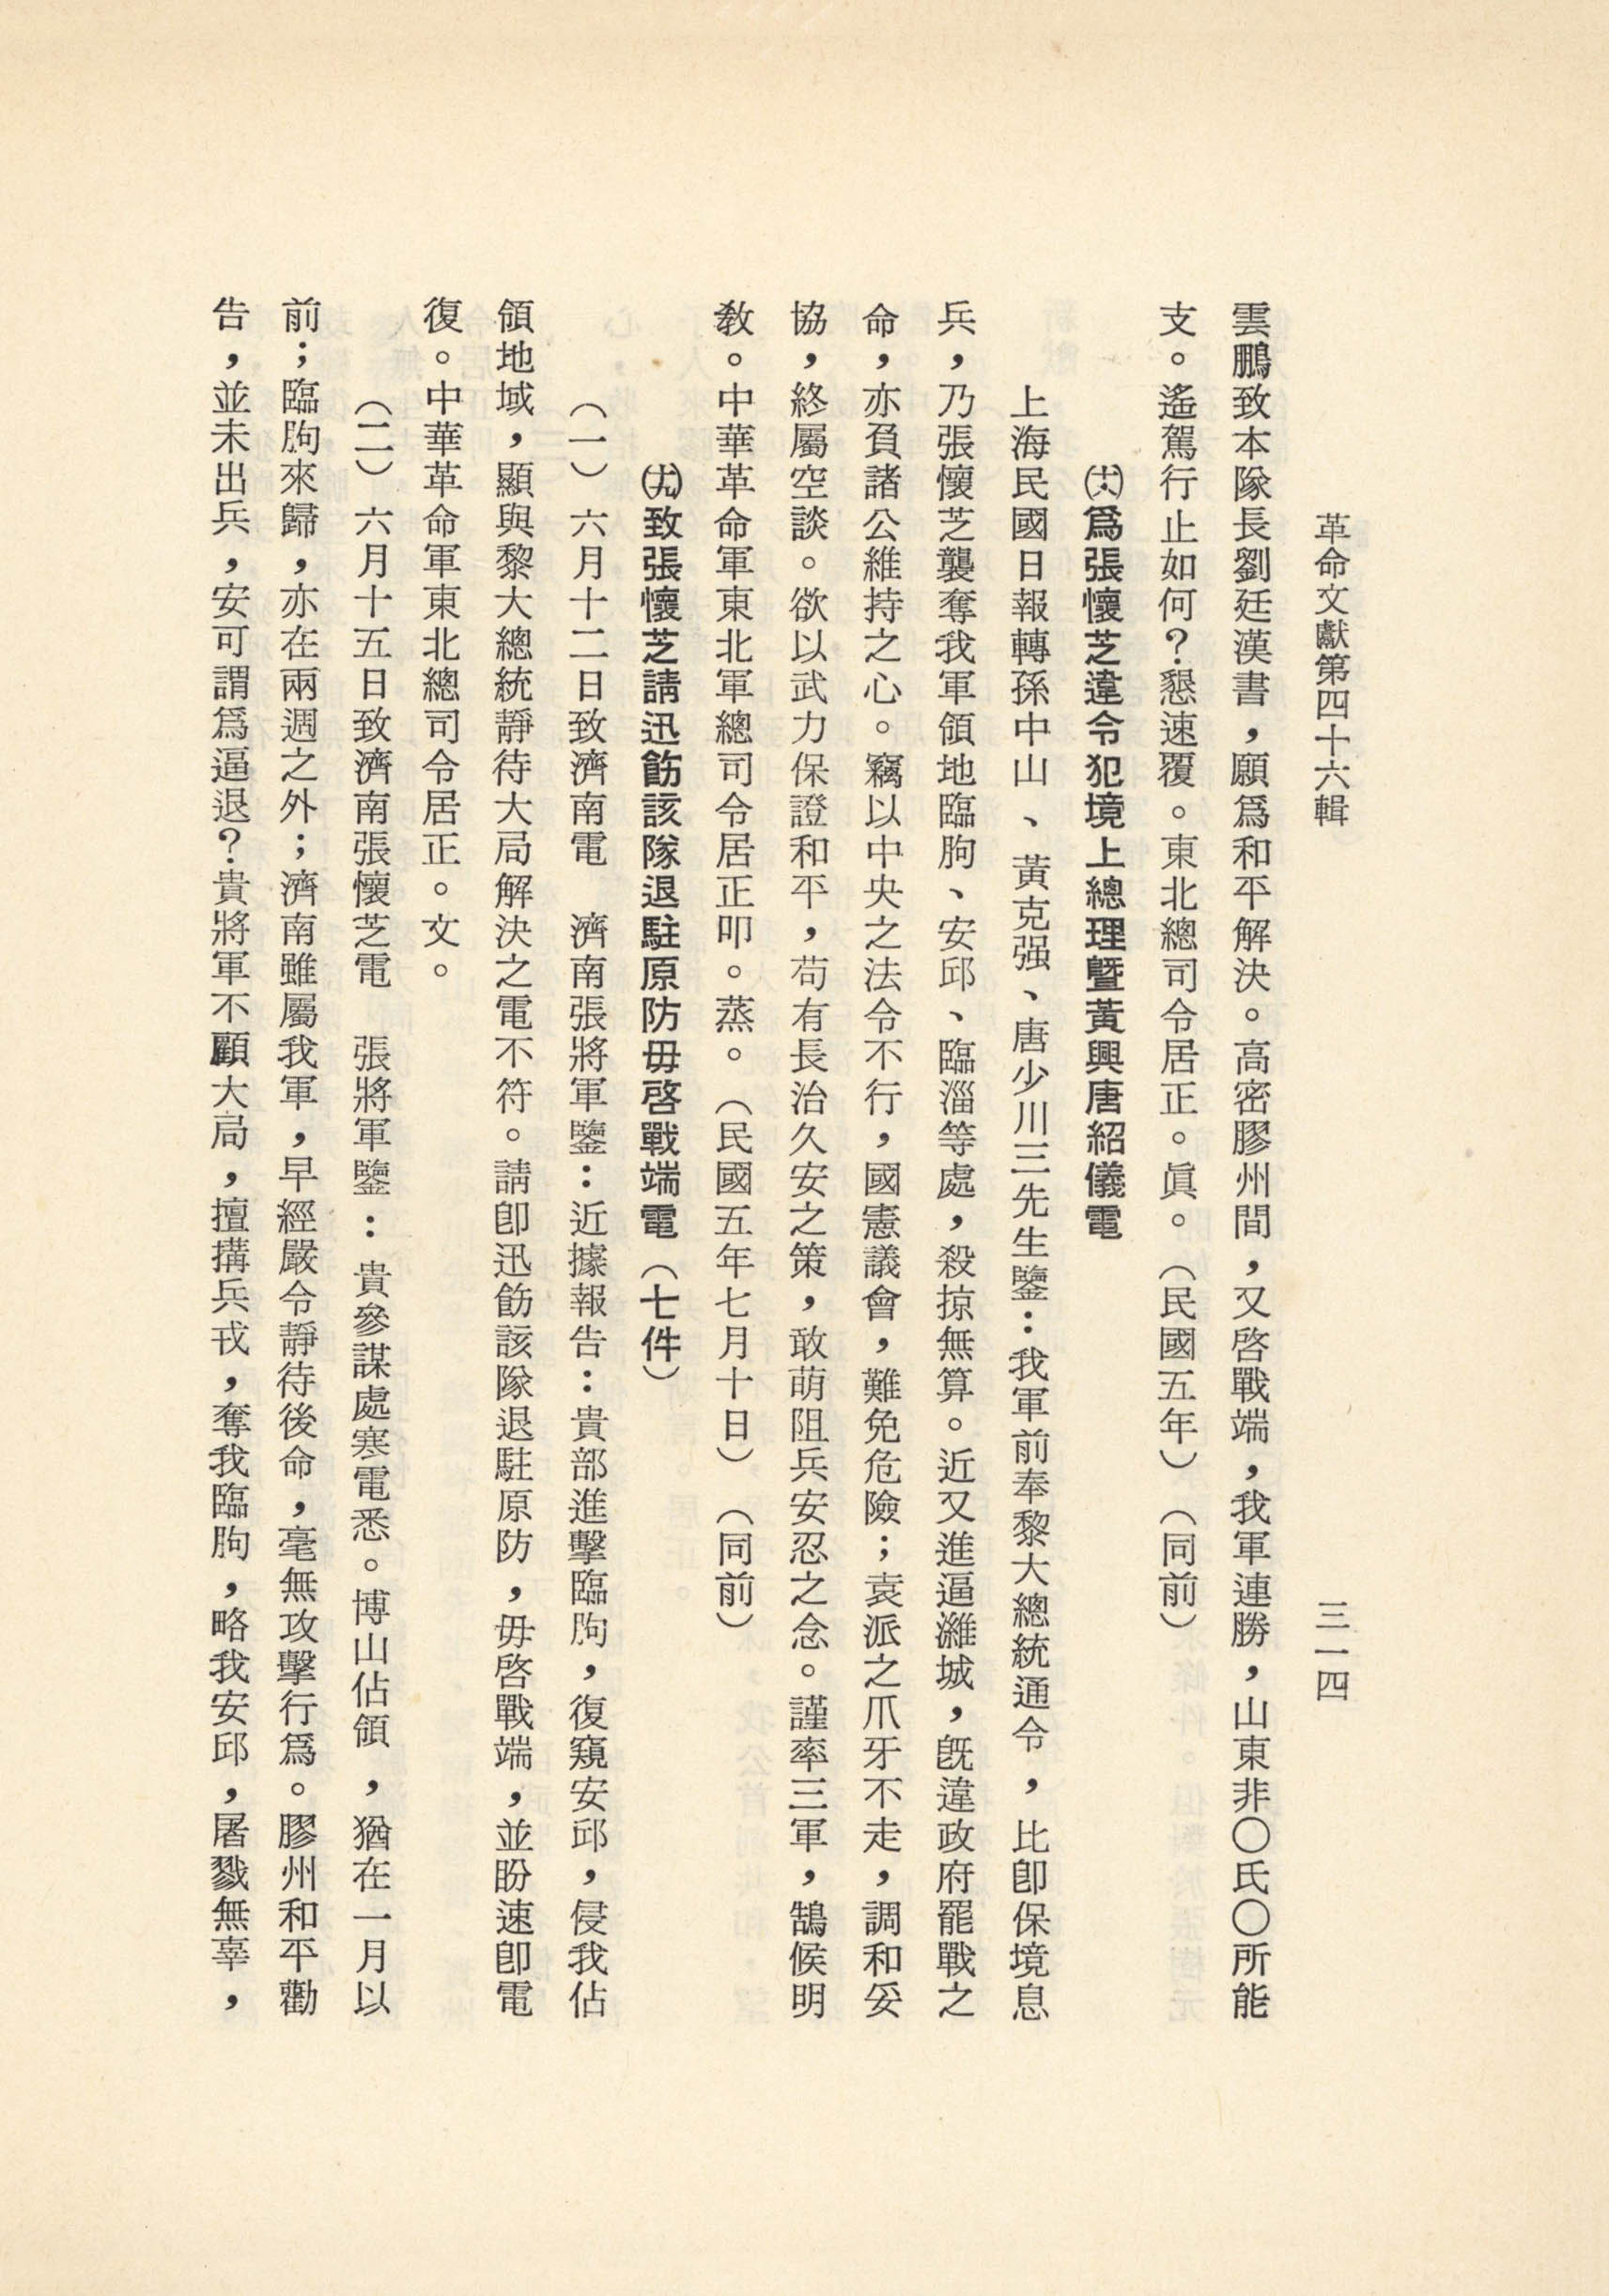 革命文獻第四十六輯
三一四
雲鵬致本隊長劉廷漢書，願爲和平解決。高密膠州間，又啓戰端，我軍連勝，山東非〇氏〇所能
支。遙駕行止如何？懇速覆。東北總司令居正。眞。（民國五年）（同前）
㈩㈧爲張懷芝違令犯境上總理暨黃興唐紹儀電
上海民國日報轉孫中山、黃克强、唐少川三先生鑒：我軍前奉黎大總統通令，比卽保境息
兵，乃張懷芝襲奪我軍領地臨朐、安邱、臨淄等處，殺掠無算。近又進逼濰城，旣違政府罷戰之
命，亦負諸公維持之心。竊以中央之法令不行，國憲議會，難免危險；袁派之爪牙不走，調和妥
協，終屬空談。欲以武力保證和平，苟有長治久安之策，敢萌阻兵安忍之念。謹率三軍，鵠候明
敎。中華革命軍東北軍總司令居正叩。蒸。（民國五年七月十日）（同前）
㈩㈨致張懷芝請迅飭該隊退駐原防毋啓戰端電（七件）
（一）六月十二日致濟南電　濟南張將軍鑒：近據報告：貴部進擊臨朐，復窺安邱，侵我佔
領地域，顯與黎大總統靜待大局解決之電不符。請卽迅飭該隊退駐原防，毋啓戰端，並盼速卽電
復。中華革命軍東北總司令居正。文。
（二）六月十五日致濟南張懷芝電　張將軍鑒：貴參謀處寒電悉。博山佔領，猶在一月以
前；臨朐來歸，亦在兩週之外；濟南雖屬我軍，早經嚴令靜待後命，毫無攻擊行爲。膠州和平勸
告，並未出兵，安可謂爲逼退？貴將軍不顧大局，擅搆兵戎，奪我臨朐，略我安邱，屠戮無辜，